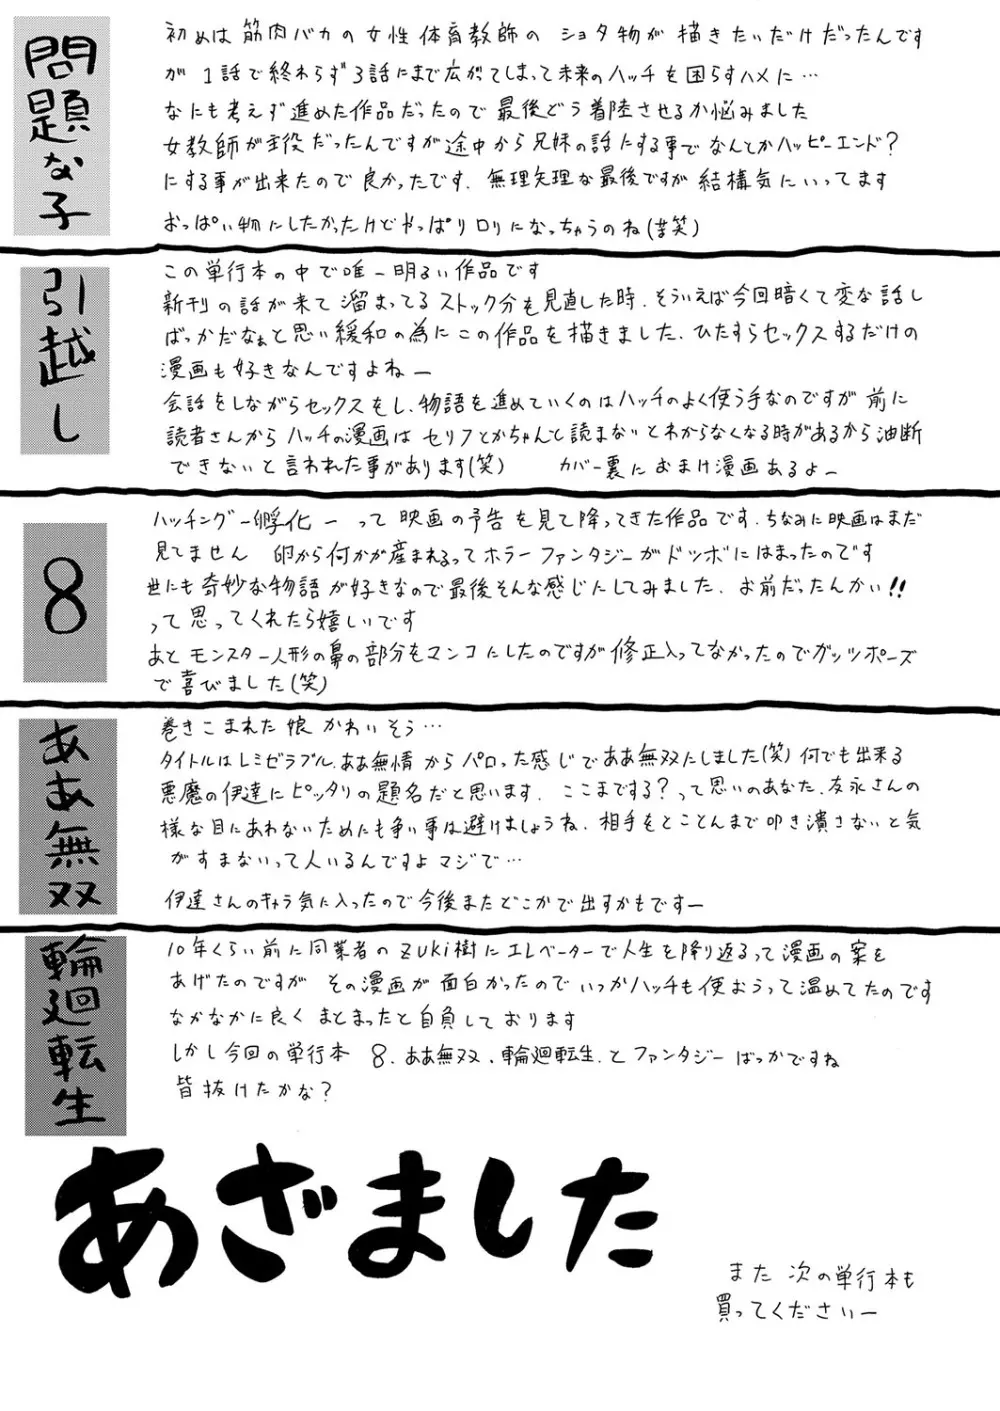 問題な子
初めは筋肉バカの女性体育教師のショタ物が描きたいだけだったんです
が1話で終わらず3話にまで広がてしまって未来のハッチを困らすハメに…
なにも考えず進めた作品だったので最後どう着陸させるか悩みました
女教師が主役だったんですが途中から兄妹の話にする事でなんとかハッピーエンド?
にする事が出来たので良かったです.無理矢理な最後ですが結構気にいってます
おっぱい物にしたかったけどやっぱりロリになっちゃうのね(苦笑)
引越し
この単行本の中で唯一明るい作品です
新刊の話が来て溜まってるストック分を見直した時、そういえば今回暗くて変な話し
ばっかだなぁと思い緩和の為にこの作品を描きました.ひたすらセックスするだけの
漫画も好きなんですよねー
会話をしながらセックスをし、物語を進めていくのはハッチのよく使う手なのですが前に
読者さんからハッチの漫画はセリフとかちゃんと読まないとわからなくなる時があるから油断
できないと言われた事があります(笑) カバー裏におまけ漫画あるよー
8
ハッチングー孵化ーって映画の予告を見て降ってきた作品です.ちなみに映画はまだ
見てません 卵から何かが産まれるってホラーファンタジーがドツボにはまったのです
世にも奇妙な物語が好きなので最後そんな感じにしてみました.お前だったんかい!!
って思ってくれたら嬉しいです
あとモンスター人形の鼻の部分をマンコにしたのですが修正入ってなかったのでガッツポーズ
で喜びました(笑)
ああ無双
巻きこまれた娘かわいそう…
タイトルはレミゼラブル.ああ無情からパロった感じでああ無双にしました(笑)何でも出来る
悪魔の伊達にピッタリの題名だと思います.ここまでする?って思いのあなた.友永さんの
様な目にあわないためにも争い事は避けましょうね.相手をとことんまで叩き潰さないと気
がすまないって人いるんですよマジで…
伊達さんのキャラ気に入ったので今後またどこかで出すかもですー
輪廻転生
10年くらい前に同業者のZUKI樹にエレベーターで人生を降り返るって漫画の案を
あげたのですがその漫画が面白かったのでいつかハッチも使おうって温めてたのです
なかなかに良くまとまったと自負しております
しかし今回の単行本 8.ああ無双、輪廻転生.とファンタジーばっかですね
皆抜けたかな?
あざました
また次の単行本も
買ってくださいー